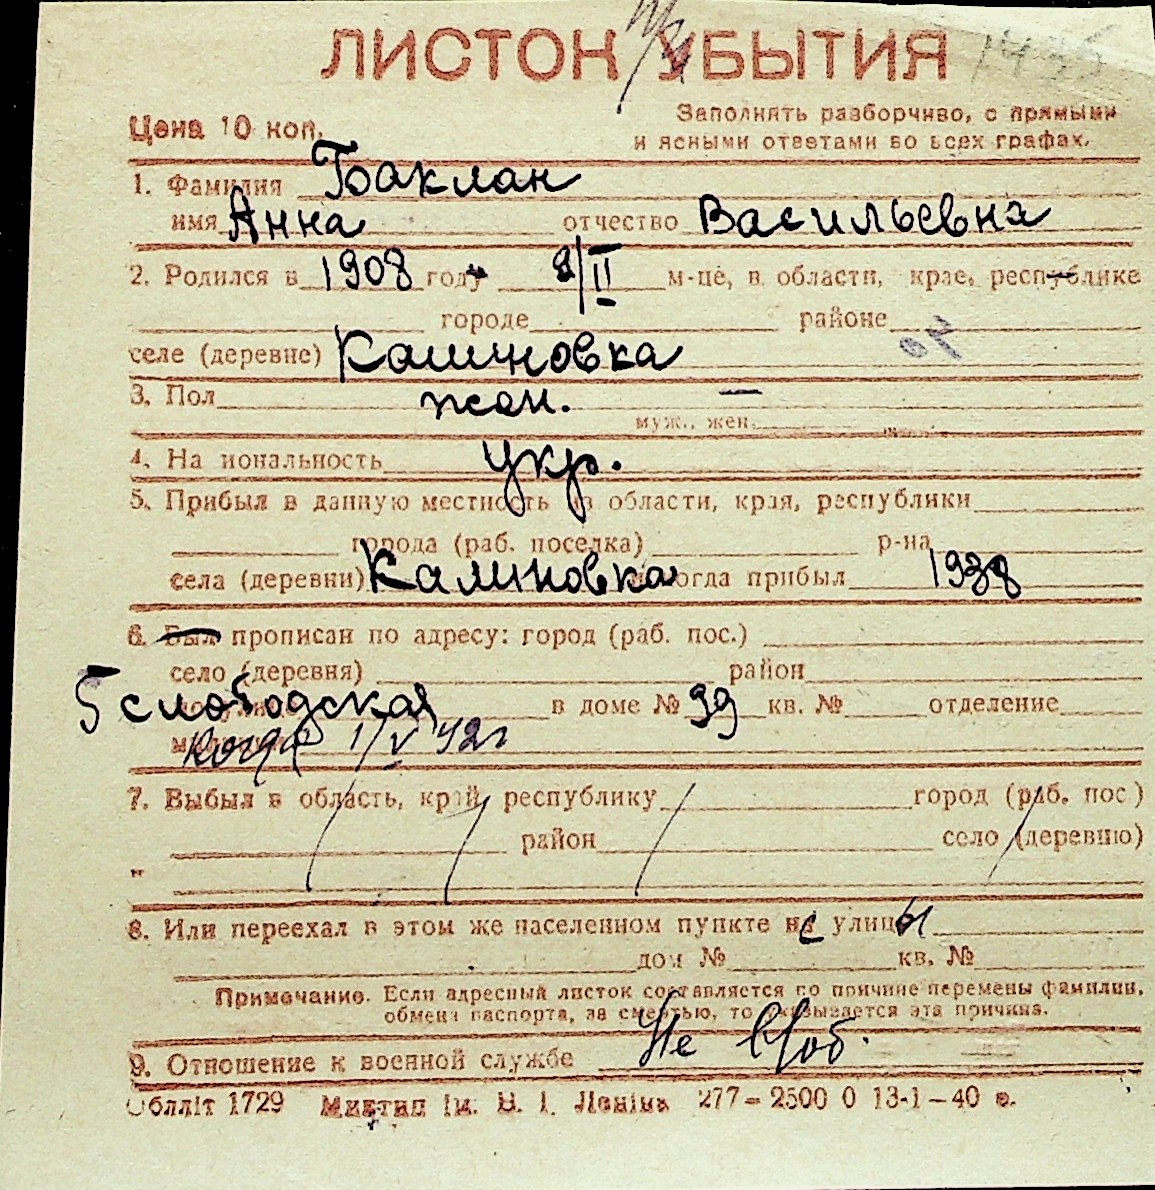 ЛИСТОК УБЫТИЯ
Цена 10 коп.
Заполнять разборчиво, с прямыми
и ясными ответами во всех графах.
1. Фамилия Баклан
имя Анна отчество Васильевна
2. Родился в 1908 году 8/II м-це, в области, крае, республике
городе районе
селе (деревне) Калиновка
3. Пол жен.
муж., жен.
4. На иональность укр.
5. Прибыл в данную местность из области, края, республики
города (раб. поселка) р-на
села (деревни) Калиновка и когда прибыл 1938
6. Был прописан по адресу: город (раб. пос.)
село (деревня) район
5 слободская в доме № 39 кв. № отделение
когда 1/V 42г
7. Выбыл в область, край, республику город (раб. пос)
район село (деревню)
8. Или переехал в этом же населенном пункте с улицы
дом № кв. №
Примечание. Если адресный листок составляется по причине перемены фамилии,
обмена паспорта, за смертью, то указывается эта причина.
9. Отношение к военной службе Не в/об.
Обллiт 1729 Миктип iм. В. I. Ленiна 277–2500 0 13-1–40 р.